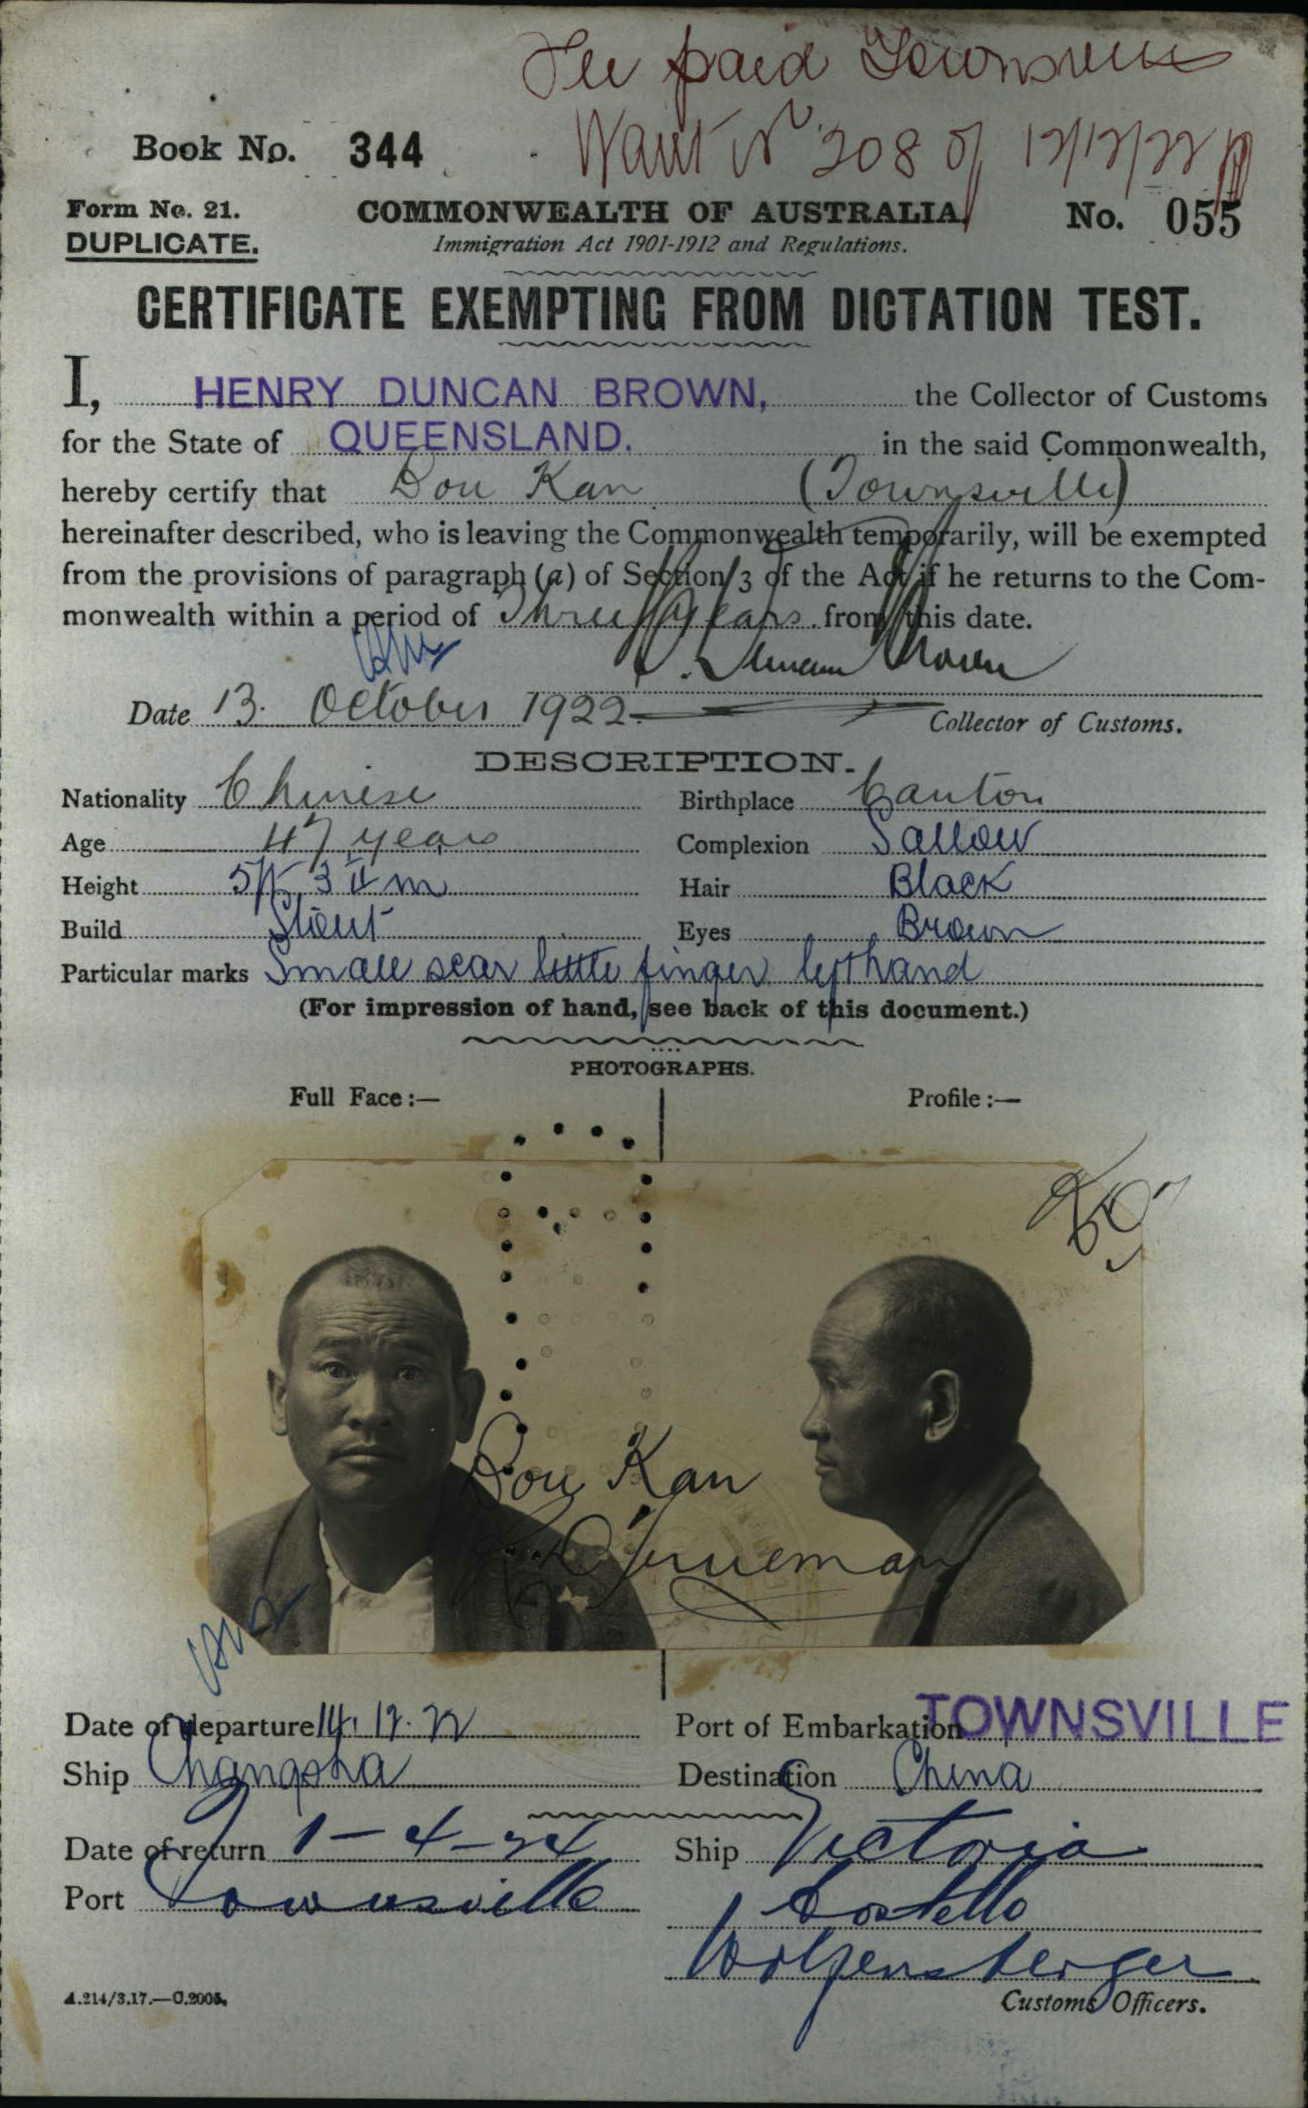 Fee paid Townsville
Book No. 344
Want No 208 of 12/12/22
Form No. 21.
COMMONWEALTH OF AUSTRALIA.
No. 055
DUPLICATE.
Immigration Act 1901-1912 and Regulations.
CERTIFICATE EXEMPTING FROM DICTATION TEST.
I, HENRY DUNCAN BROWN, the Collector of Customs
for the State of QUEENSLAND. in the said Commonwealth,
hereby certify that Dou Kan (Townsville)
hereinafter described, who is leaving the Commonwealth temporarily, will be exempted
from the provisions of paragraph (a) of Section 3 of the Act if he returns to the Com-
monwealth within a period of Three years from this date.
H. Duncan Brown
Date 13. October 1922. Collector of Customs.
DESCRIPTION.
Nationality Chinese Birthplace Canton
Age 47 years Complexion Sallow
Height 5ft 3 in Hair Black
Build Stout Eyes Brown
Particular marks Small scar little finger left hand
(For impression of hand, see back of this document.)
PHOTOGRAPHS.
Full Face :— Profile :—
Dou Kan
Date of departure 14.12.22 Port of Embarkation TOWNSVILLE
Ship Changsha Destination China
Date of return 1-4-24 Ship Victoria
Port Townsville Costello
Wolfensberger
A.214/3.17.—C.2005.
Customs Officers.